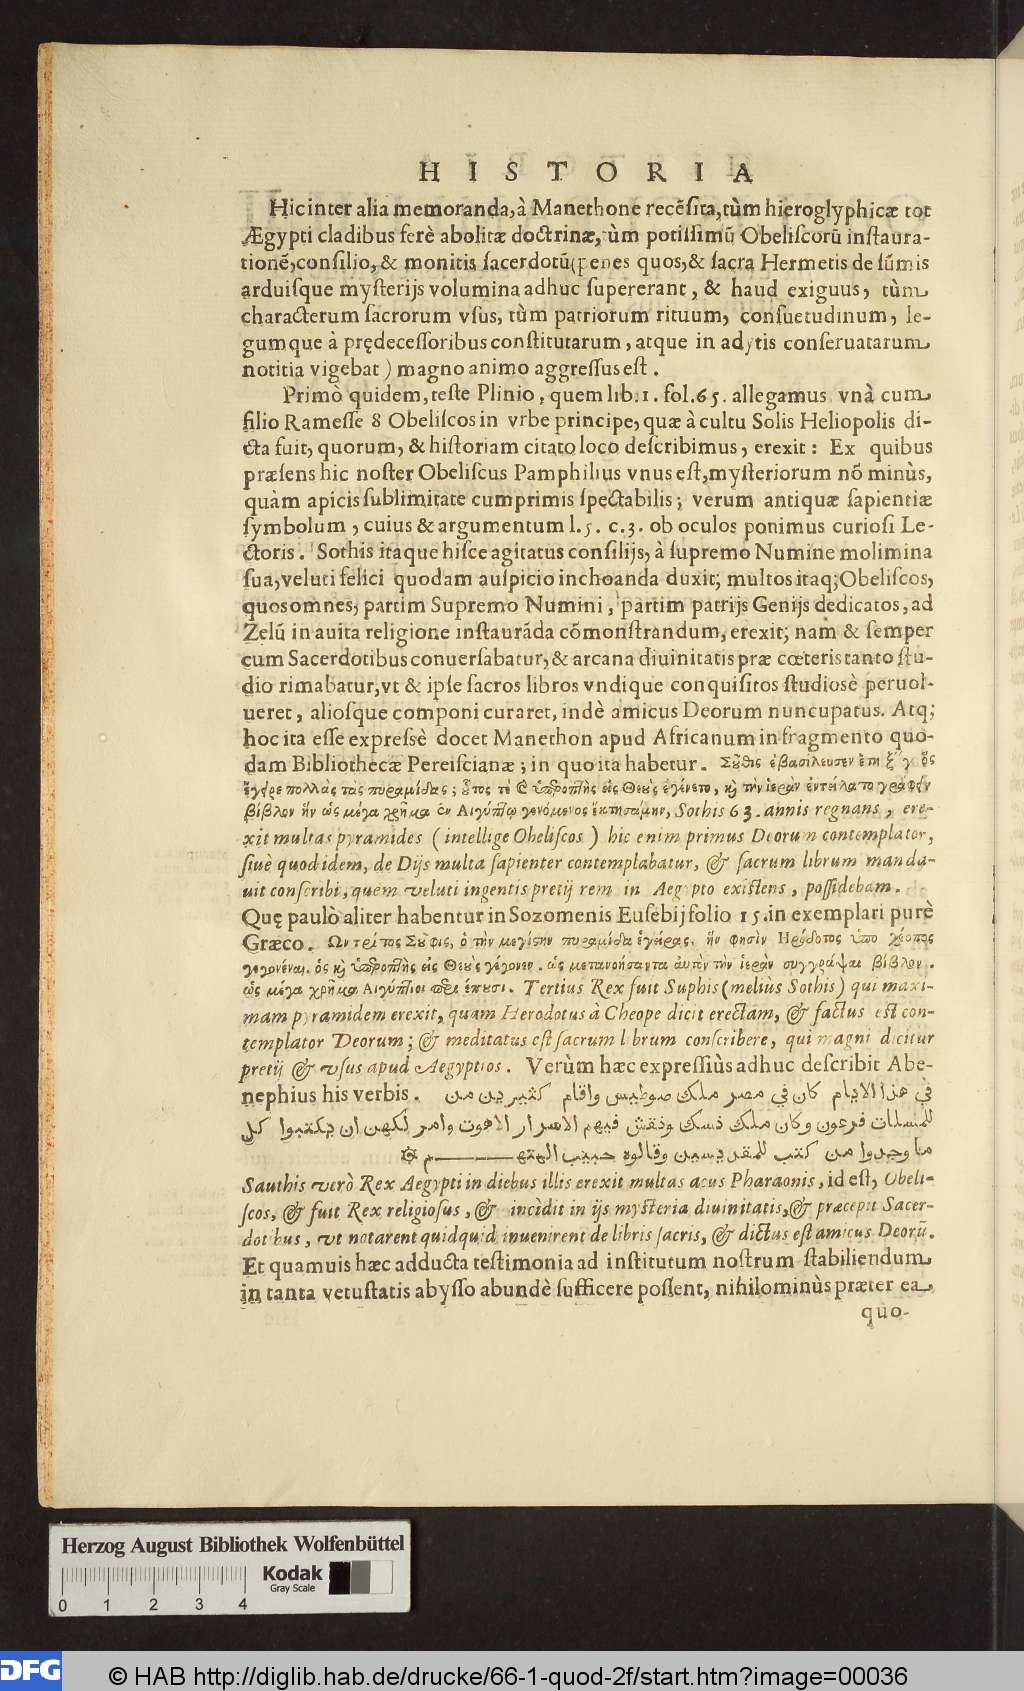 HISTORIA
Hic inter alia memoranda, à Manethone recẽsita, tùm hieroglyphicæ tot
Ægypti cladibus ferè abolitæ doctrinæ, tùm potissimũ Obeliscorũ instaura-
tionẽ, consilio, & monitis sacerdotũ (penes quos, & sacra Hermetis de sũmis
arduisque mysterijs volumina adhuc supererant, & haud exiguus, tùm
characterum sacrorum vsus, tùm patriorum rituum, consuetudinum, le-
gumque à prędecessoribus constitutarum, atque in adytis conseruatarum
notitia vigebat) magno animo aggressus est.
Primò quidem, teste Plinio, quem lib. 1. fol. 65. allegamus vnà cum
filio Ramesse 8 Obeliscos in vrbe principe, quæ à cultu Solis Heliopolis di-
cta fuit, quorum, & historiam citato loco describimus, erexit: Ex quibus
præsens hic noster Obeliscus Pamphilius vnus est, mysteriorum nõ minùs,
quàm apicis sublimitate cumprimis spectabilis; verum antiquæ sapientiæ
symbolum, cuius & argumentum l. 5. c. 3. ob oculos ponimus curiosi Le-
ctoris. Sothis itaque hisce agitatus consilijs, à supremo Numine molimina
sua, veluti felici quodam auspicio inchoanda duxit; multos itaq; Obeliscos,
quos omnes, partim Supremo Numini, partim patrijs Genijs dedicatos, ad
Zelũ in auita religione instaurãda cõmonstrandum, erexit; nam & semper
cum Sacerdotibus conuersabatur, & arcana diuinitatis præ cœteris tanto stu-
dio rimabatur, vt & ipse sacros libros vndique conquisitos studiosè peruol-
ueret, aliosque componi curaret, indè amicus Deorum nuncupatus. Atq;
hoc ita esse expressè docet Manethon apud Africanum in fragmento quo-
dam Bibliothecæ Pereiscianæ; in quo ita habetur. Σῶθις ἐβασίλευσεν ἔτη ξ γ ὃς
ἔγειρε πολλὰς τὰς πυραμίδας; οὗτος τε ὑπερόπτης εἰς Θεοὺς ἐγένετο, κỳ τὴν ἱερὰν ἐντείλατο γράφειν
βίβλον ἣν ὡς μέγα χρῆμα ἐν Αἰγύπτῳ γενόμενος ἐκτησάμην, Sothis 63. annis regnans, ere-
xit multas pyramides (intellige Obeliscos) hic enim primus Deorum contemplator,
siuè quod idem, de Dijs multa sapienter contemplabatur, & sacrum librum manda-
uit conscribi, quem veluti ingentis pretij rem in Aegypto existens, possidebam.
Quę paulò aliter habentur in Sozomenis Eusebij folio 15. in exemplari purè
Græco. Ων τρίτος Σοῦφις, ὁ τὴν μεγίστην πυραμίδα ἐγείρας. ἥν φησὶν Ηρόδοτος ὑπο χέοπος
γεγονέναι. ὃς κỳ ὑπερόπτης εἰς Θεοὺς γέγονεν. ὡς μετανοήσαντα αὐτὸν τὴν ἱερὰν συγγράψαι βίβλον.
ὡς μέγα χρῆμα Αἰγύπτιοι περιέπουσι. Tertius Rex fuit Suphis (melius Sothis) qui maxi-
mam pyramidem erexit, quam Herodotus à Cheope dicit erectam, & factus est con-
templator Deorum; & meditatus est sacrum librum conscribere, qui magni dicitur
pretij & vsus apud Aegyptios. Verùm hæc expressiùs adhuc describit Abe-
nephius his verbis. في هذا الايام كان في مصر ملك صوطيس واقام كثيرين من
للمسلات فرعون وكان ملك دسك ونقش فيهم الاسرار الاهوت وامر لكهن ان يكتبوا كل
ما وجدوا من كتب للمقدسين وقالوه حبيب الهته م
Sauthis verò Rex Aegypti in diebus illis erexit multas acus Pharaonis, id est, Obeli-
scos, & fuit Rex religiosus, & incìdit in ijs mysteria diuinitatis, & præcepit Sacer-
dotibus, vt notarent quidquid inuenirent de libris sacris, & dictus est amicus Deorũ.
Et quamuis hæc adducta testimonia ad institutum nostrum stabiliendum
in tanta vetustatis abysso abundè sufficere possent, nihilominùs præter ea
quo-
Herzog August Bibliothek Wolfenbüttel
Kodak
Gray Scale
0 1 2 3 4
DFG
© HAB http://diglib.hab.de/drucke/66-1-quod-2f/start.htm?image=00036